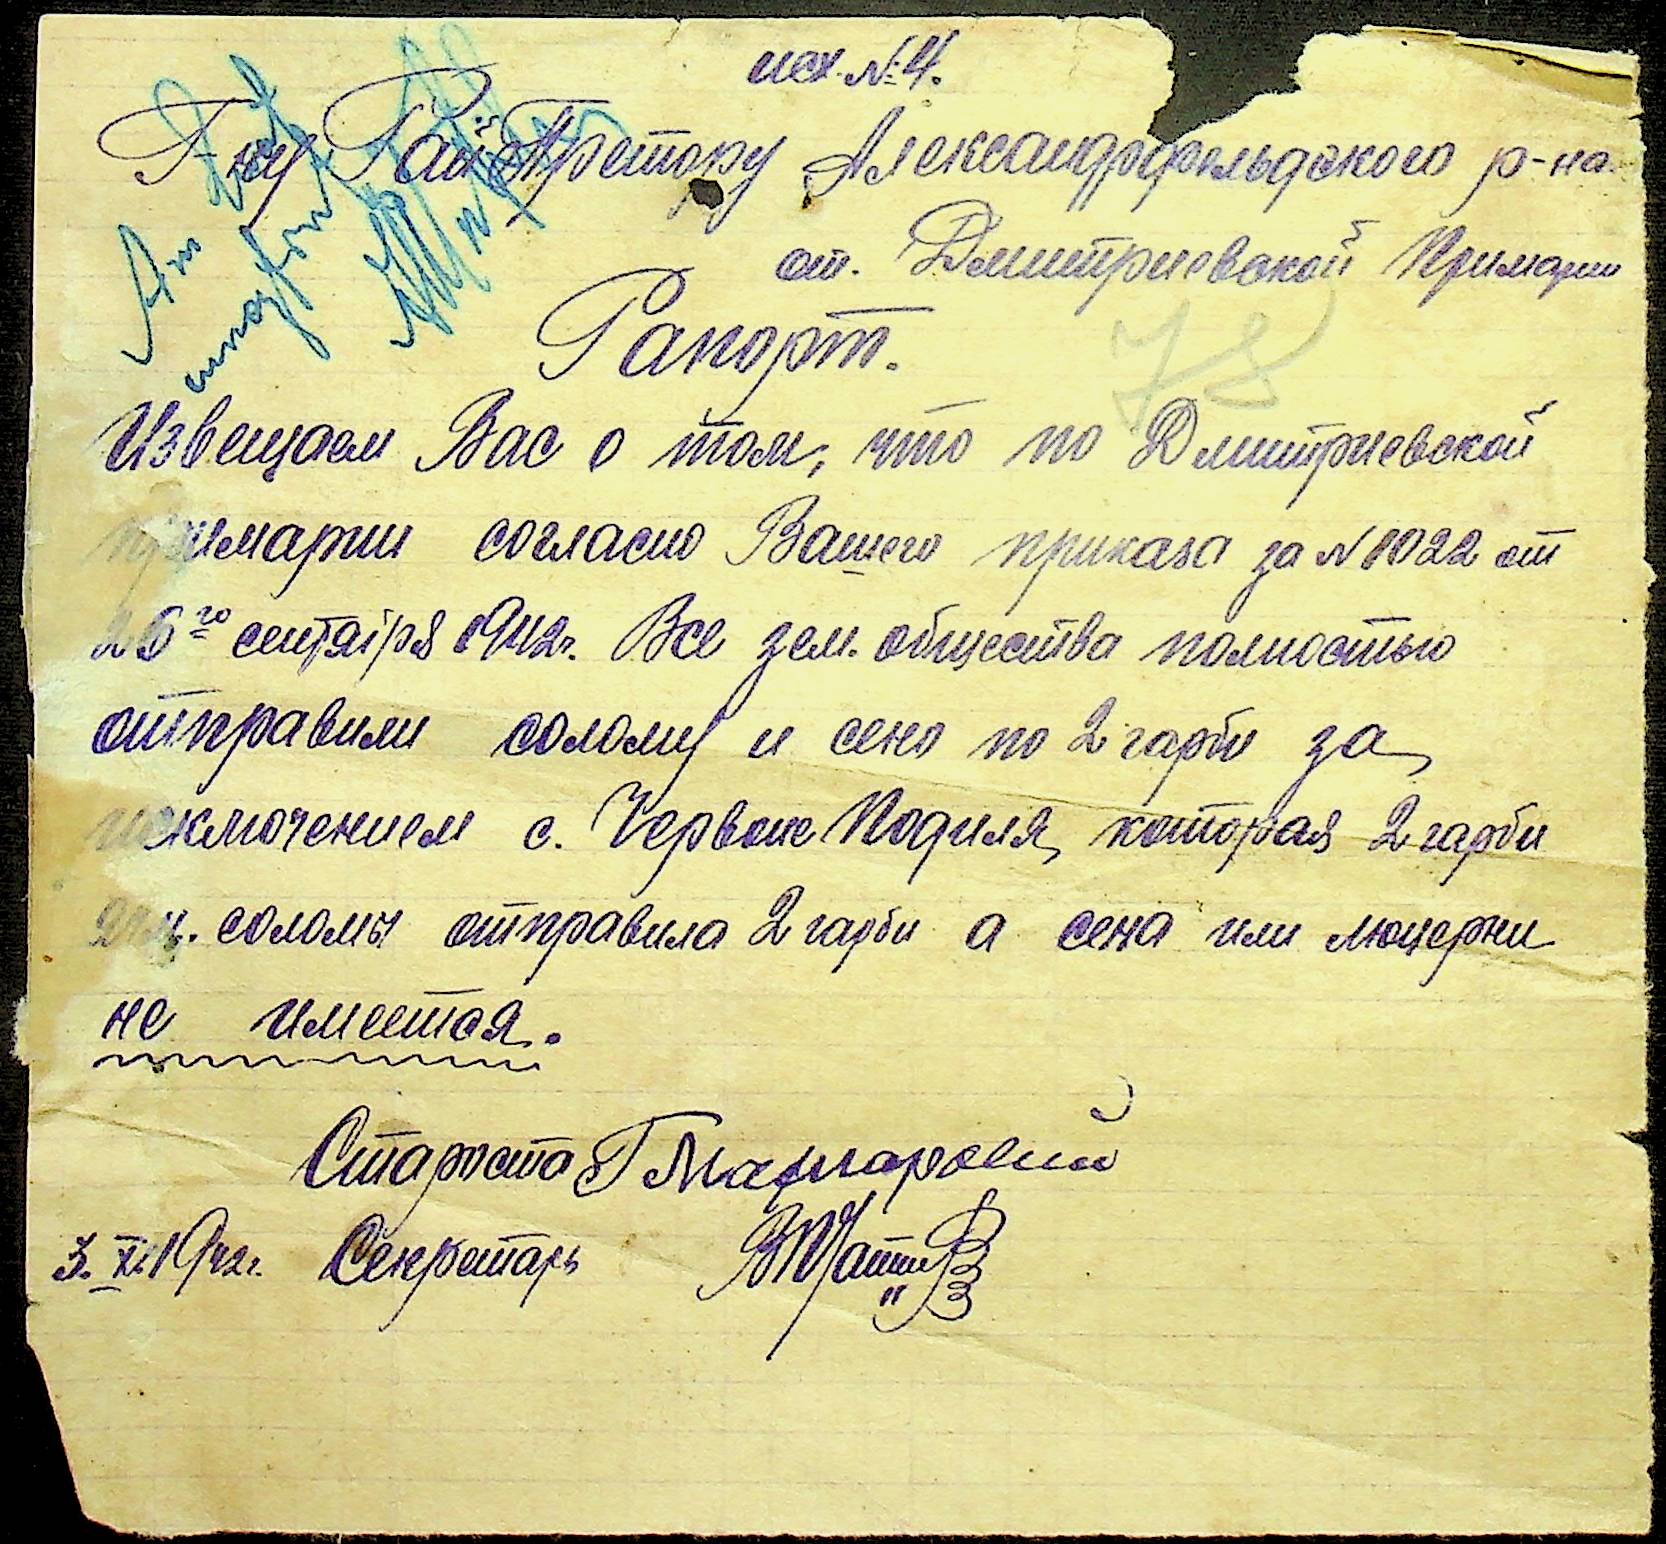 исх. №4.
Г-ну Рай Претору Александрфельдского р-на.
от. Дмитриевской Примарии
Рапорт.
78
Извещаем Вас о том, что по Дмитриевской
примарии согласно Вашего приказа за №1022 от
26го сентября 1942г. Все зем. общества полностью
отправили солому и сено по 2 гарби за
исключением с. Червоне Подиля, которая 2 гарби
соломы отправила 2 гарби а сена или люцерни
не имеется.
Староста Г
3. XI 1942г. Секретарь